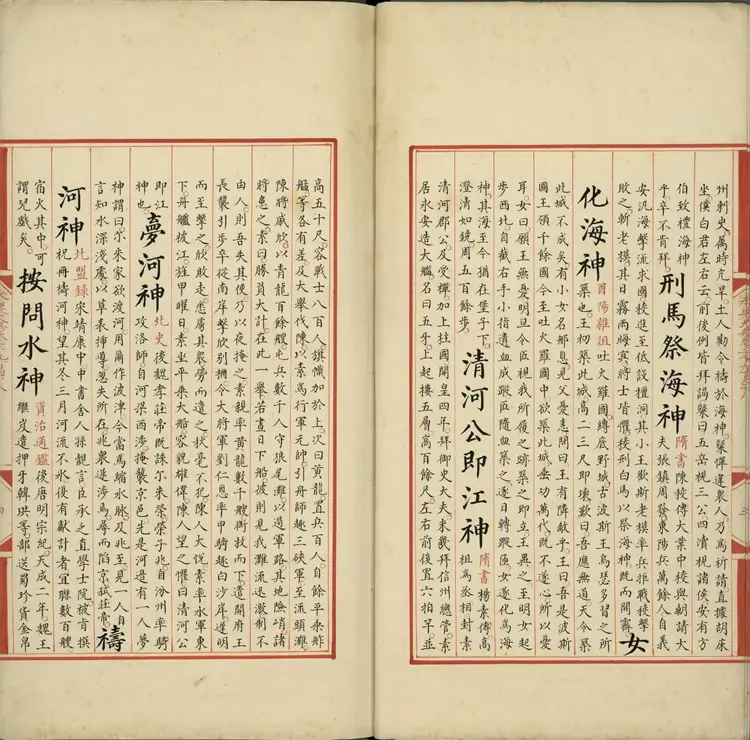 州刺史。屬時亢旱。土人勸令禱於海神。榮憚違衆人。乃為祈請。直據胡床
坐。僕白君左右云。前後例皆拜謁。榮曰。五岳視三公。四瀆視諸侯。安有方
伯致禮海神
乎。卒不肯拜。
刑馬祭海神
隋書陳稜傳大業中稜與朝請大
夫張鎮周發東陽兵萬餘人自義
安汎海擊流求國。稜進至低設檀洞。其小王歡斯老模率兵拒戰。稜擊
敗之。斬老模。其日霧雨晦冥。將士皆懼。稜刑白馬以祭海神。既而開霽
女
化海神
酉陽雜俎吐火羅國縛底野城。古波斯王烏瑟多習之所
築也。王初築此城。高二三尺即壞。歎曰。吾應無道。天令築
此城不成矣。有小女名那息。見父憂恚。問曰。王有隣敵乎。王曰。吾是波斯
國王。領千餘國。今至吐火羅國中。欲築此城。垂功萬代。既不遂心。所以憂
耳。女曰。願王無憂。明旦令匠視我所履之跡築之。即立。王異之。至明女起
步西北。自截右手小指。遺血成蹤。匠隨血築之。逐日轉蹤匝。女遂化為海
神。其海至今猶在堡子下。
澄清如鏡。周五百餘步。
清河公即江神
隋書楊素傳。高
祖為丞相封素
清河郡公。及受禪。加上柱國。開皇四年。拜御史大夫。未幾拜信州總管。素
居永安。造大艦。名曰五牙。上起樓五層。高百餘尺。左右前後置六拍竿。並
高五十尺。容戰士八百人。旗幟加於上。次曰黃龍。置兵百人。自餘平乘舴
艋等各有差。及大舉伐陳。以素為行軍元帥。引舟師趣三硤。軍至流頭灘。
陳將戚欣。以青龍百餘艘。屯兵數千人。守狼尾灘。以遏軍路。其地險峭。諸
將患之。素曰。勝負大計。在此一舉。若晝日下船。彼則見我。灘流迅激。制不
由人。則吾失其便。乃以夜掩之。素親率黃龍數千艘。銜枚而下。遣開府王
長襲引步卒從南岸擊欣別柵。令大將軍劉仁恩率甲騎趣白沙岸。遲明
而至。擊之。欣敗走。悉虜其衆。勞而遣之。秋毫不犯。陳人大悅。素率水軍東
下。舟艫被江。旌甲曜日。素坐平乘大船。容貌雄偉。陳人望之懼曰。清河公
即江
神也。
夢河神
北史後魏孝莊帝既誅尒朱榮。榮子兆自汾州率騎
攻洛師。自河梁西涉。掩襲京邑。先是河邊有一人夢
神謂曰。尒朱家欲渡河。用爾作波津。令當為縮水脉。及兆至。見一人自
言知水深淺處。以草表揷導。忽失所在。兆衆遂涉焉。尋而陷京弒莊帝。
禱
河神
北盟錄宋靖康中。中書舍人孫覿言。臣承之直學士院。被旨撰
祝冊。禱河神。望其冬三月。河流不氷。後有獻計者。宜聯數百艘
宿火其中。可
謂兒戲矣。
按問水神
資治通鑑後唐明宗紀。天成二年。魏王
繼岌遣押牙韓珙等。部送蜀珍貨金帛